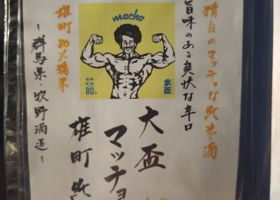 精白のマッチョな純米酒
旨味のある爽快な辛口
macho
80%
大盃
大盃
マッチョ
雄町 純
雄町80%精米
~群馬県・牧野酒造~